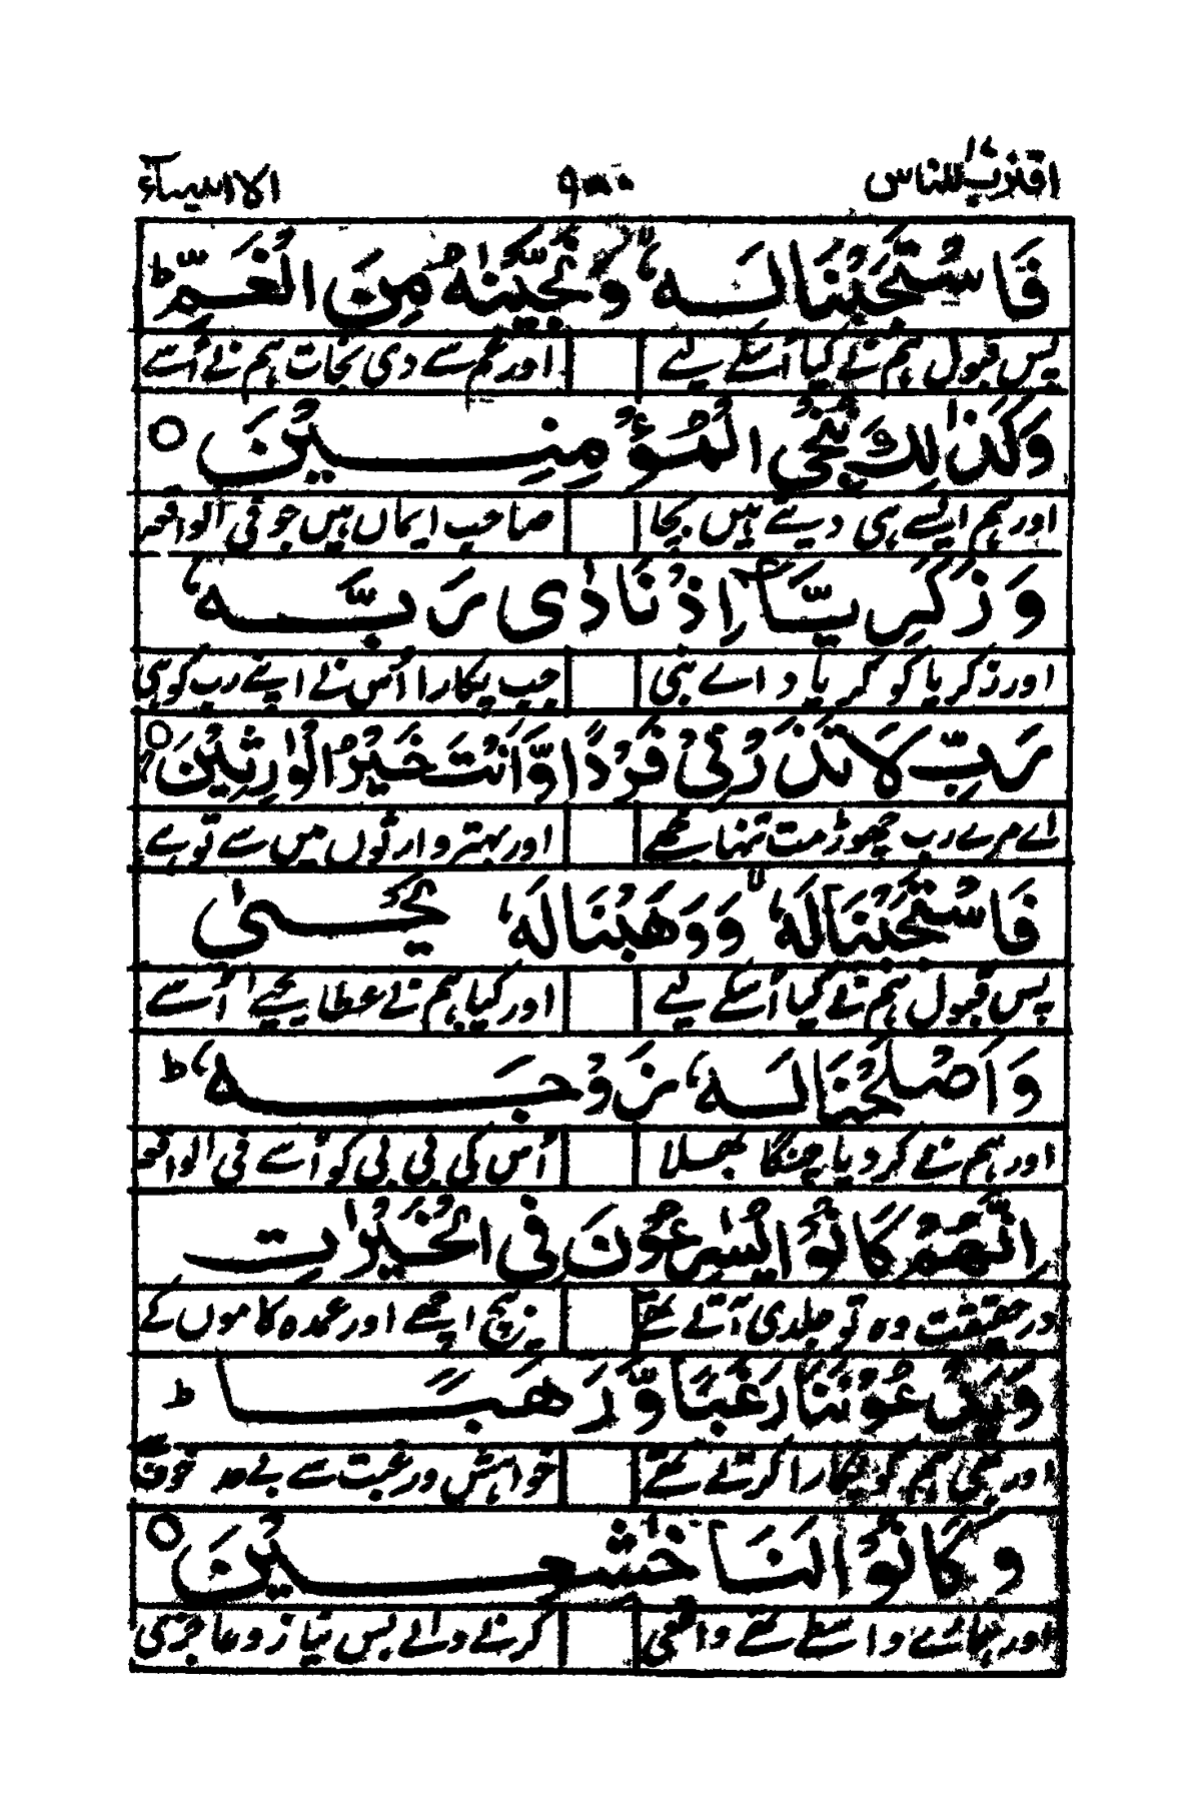 اقترب للناس ١٧ ٩٠٠ الانبیآء
فَاسْتَجَبْنَا لَهٗ ۙ وَنَجَّيْنٰهُ مِنَ الْغَمِّ ؕ
پس قبول ہم نے کیا اُسکے لیے اور غم سے دی نجات ہم نے اُسے
وَكَذٰلِكَ نُنْجِي الْمُؤْمِنِيْنَ ○
اور ہم ایسے ہی دیتے ہیں بچا صاحبِ ایماں ہیں جو فی الواقعہ
وَزَكَرِيَّآ اِذْ نَادٰى رَبَّهٗ
اور زکریا کو کر یاد اے نبی جب پکارا اُس نے اپنے رب کو ہی
رَبِّ لَا تَذَرْنِيْ فَرْدًا وَّاَنْتَ خَيْرُ الْوٰرِثِيْنَ ○
اے مرے رب چھوڑ مت تنہا مجھے اور بہتر وارثوں میں سے تو ہے
فَاسْتَجَبْنَا لَهٗ ۙ وَوَهَبْنَا لَهٗ يَحْيٰى
پس قبول ہم نے کیا اُسکے لیے اور کیا ہم نے عطا یحییٰ اُسے
وَاَصْلَحْنَا لَهٗ زَوْجَهٗ ؕ
اور ہم نے کر دیا چنگا بھلا اُس کی بی بی کو اُسے فی الواقعہ
اِنَّهُمْ كَانُوْا يُسٰرِعُوْنَ فِي الْخَيْرٰتِ
درحقیقت وہ تو جلدی آتے تھے بیچ اچھے اور عمدہ کاموں کے
وَيَدْعُوْنَنَا رَغَبًا وَّرَهَبًا ؕ
اور بھی ہم کو پکارا کرتے تھے خواہش و رغبت سے بے حد خوف
وَكَانُوْا لَنَا خٰشِعِيْنَ ○
اور ہمارے واسطے تھے واقعی کرنے والے بس نیاز و عاجزی